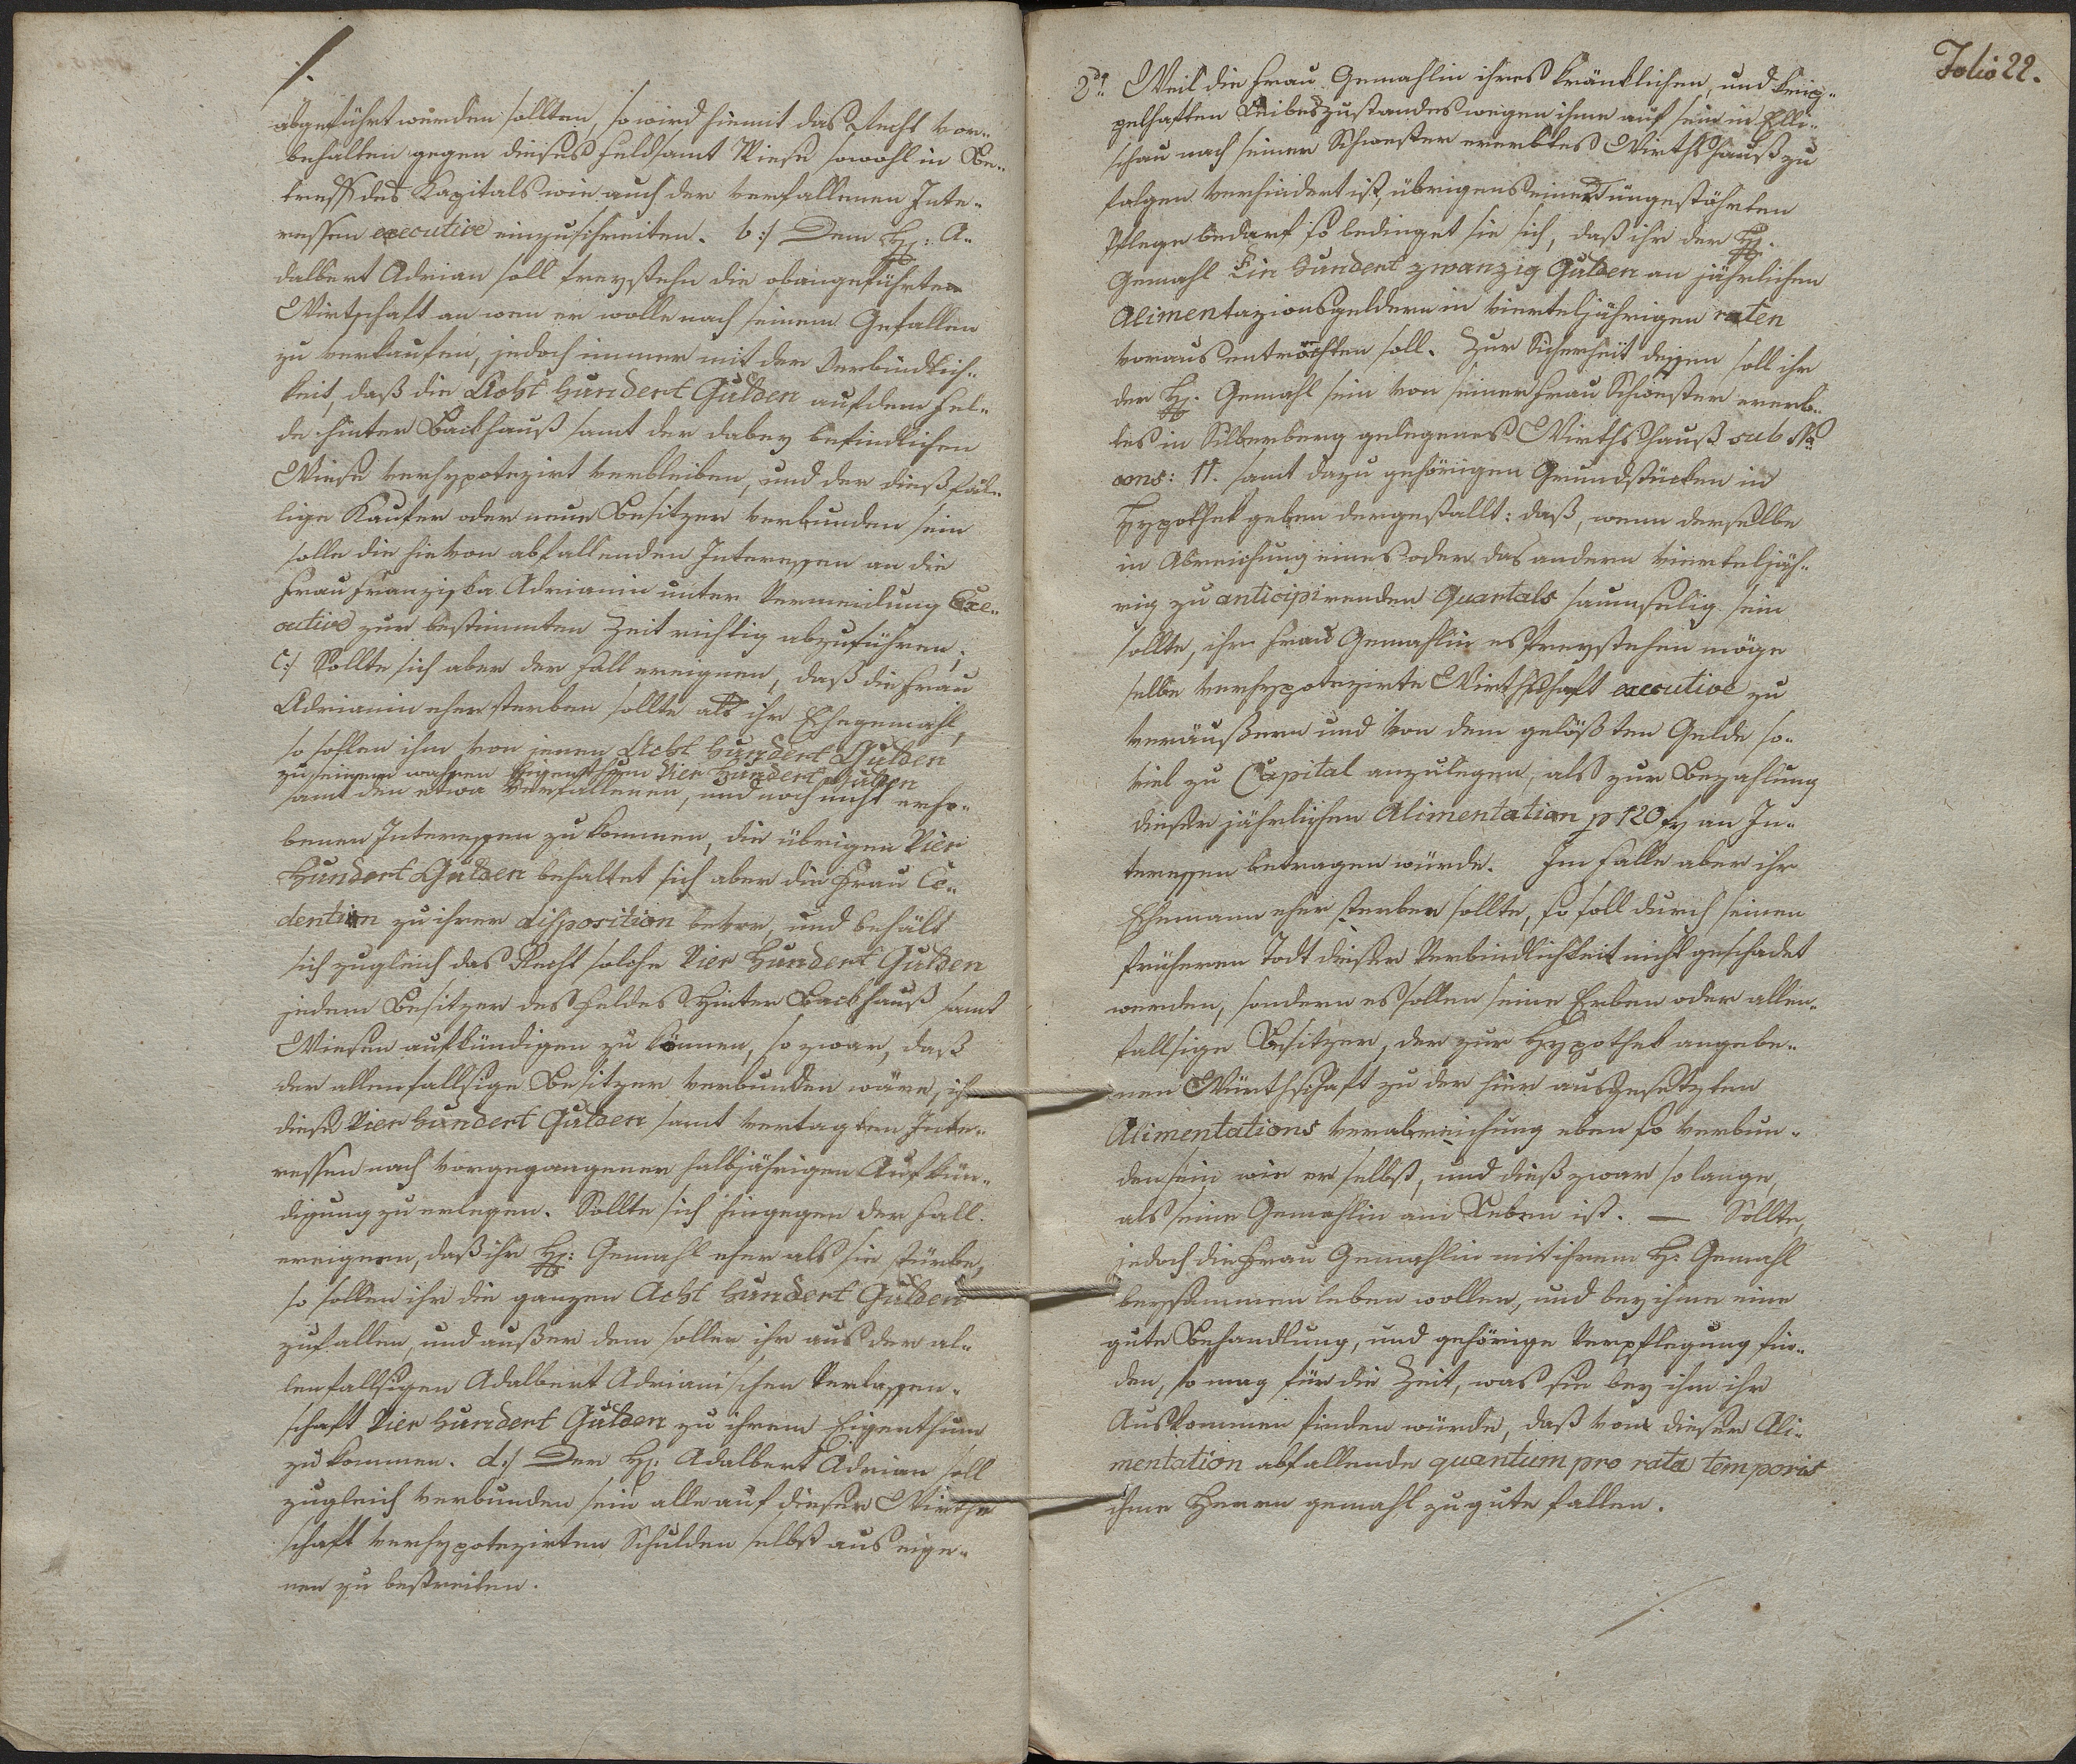 ./.
abgeführt werden sollten, so wird hiemit das Recht vor-
behalten gegen dieses Feld samt Wiese sowohl in Be-
treff des Kapitals wie auch der verfallenen Inte-
ressen executive einzuschreiten. b:/ Dem H: A-
dalbert Adrian soll freystehn die obangeführte
Wirtschaft an wen er wolle nach seinem Gefallen
zu verkaufen, jedoch immer mit der Verbindlich-
keit, daß die Acht Hundert Gulden auf dem Fel-
de hinter Backhauß samt der dabey befindlichen
Wiese verhypotezirt verbleiben, und der dießfäl-
lige Kaufer oder neue Besitzer verbunden sein
solle die hievon abfallenden Interessen an die
Frau Franziska Adrianin unter Vermeidung Exe-
cutive zur bestimmten Zeit richtig abzuführen;
c:/ Sollte sich aber der Fall ereignen, daß die Frau
Adrianin eher sterben sollte als ihr Ehegemahl,
so sollen ihm von jenen Acht Hundert Gulden
zu seinem wahren Eigenthum Vier Hundert Gulden
samt den etwa verfallenen, und noch nicht erho-
benen Interessen zu kommen, die übrigen Vier
Hundert Gulden behaltet sich aber die Frau Ce-
dentin zu ihrer disposition bevor, und behält
sich zugleich das Recht solche Vier Hundert Gulden
jedem Besitzer des Feldes Hinter Backhauß samt
Wiesen aufkündigen zu können, so zwar, daß
der allenfallsige Besitzer verbunden wäre, ihr
diese Vier Hundert Gulden samt vertagten Inte-
ressen nach vorgegangener halbjährigen Aufkün-
digung zu erlegen. Sollte sich hingegen der Fall
ereignen, daß ihr H: Gemahl eher als sie stürbe,
so sollen ihr die ganzen Acht Hundert Gulden
zufallen, und außer dem sollen ihr aus der al-
lenfallsigen Adalbert Adrianischen Verlassen-
schaft Vier Hundert Gulden zu ihrem Eigenthum
zu kommen. d:/ Der H: Adalbert Adrian soll
zugleich verbunden sein alle auf dieser Wirth-
schaft verhypotezirten Schulden selbst aus eige-
nen zu bestreiten.
Folio 22.
2do Weil die Frau Gemahlin ihres kränklichen, und
Leibeszustandes wegen ihme auf sein in Elli-
schau nach seiner Schwester ererbtes Wirthshauß zu
folgen verhindert ist, übrigens einer ungestöhrten
Pflege bedarf so bedinget sie sich, daß ihr der H:
Gemahl Ein Hundert zwanzig Gulden an jährlichen
Alimentazionsgeldern in vierteljährigen raten
voraus entrichten soll. Zur Sicherheit dessen soll ihr
der H: Gemahl sein von seiner Frau Schwester ererb-
tes in Silberberg gelegenes Wirthshauß sub No
cons: 11. samt dazu gehörigen Grundstücken in
Hypothek geben dergestallt: daß, wenn derselbe
in Abreichung eines oder das andern vierteljäh-
rig zu anticipirenden Quantals saumselig sein
sollte, ihr Frau Gemahlin es freystehen möge
selbe verhypotezirte Wirthschaft executive zu
veräußern und von dem gelößten Gelde so-
viel zu Capital anzulegen, als zur Bezahlung
dieser jährlichen Alimentation p 120 f an In-
teressen betragen würde. Im Falle aber ihr
Ehemann eher sterben sollte, so soll durch seinen
früheren Todt dieser Verbindlichkeit nicht geschadet
werden, sondern es sollen seine Erben oder allen-
fallsige Besitzer, der zur Hypothek angebe-
nen Würthschaft zu der hier ausgesetzten
Alimentations verabreichung eben so verbun-
den sein wie er selbst, und dieß zwar so lange,
als seine Gemahlin am Leben ist. — Sollte,
jedoch die Frau Gemahlin mit ihrem H: Gemahl
beysammen leben wollen, und bey ihme eine
gute Behandlung, und gehörige Verpflegung fin-
den, so mag für die Zeit, was sie bey ihm ihr
Auskommen finden würde, daß von dieser Ali-
mentation abfallende quantum pro rata temporis
ihme Herrn gemahl zu gute fallen.
./.